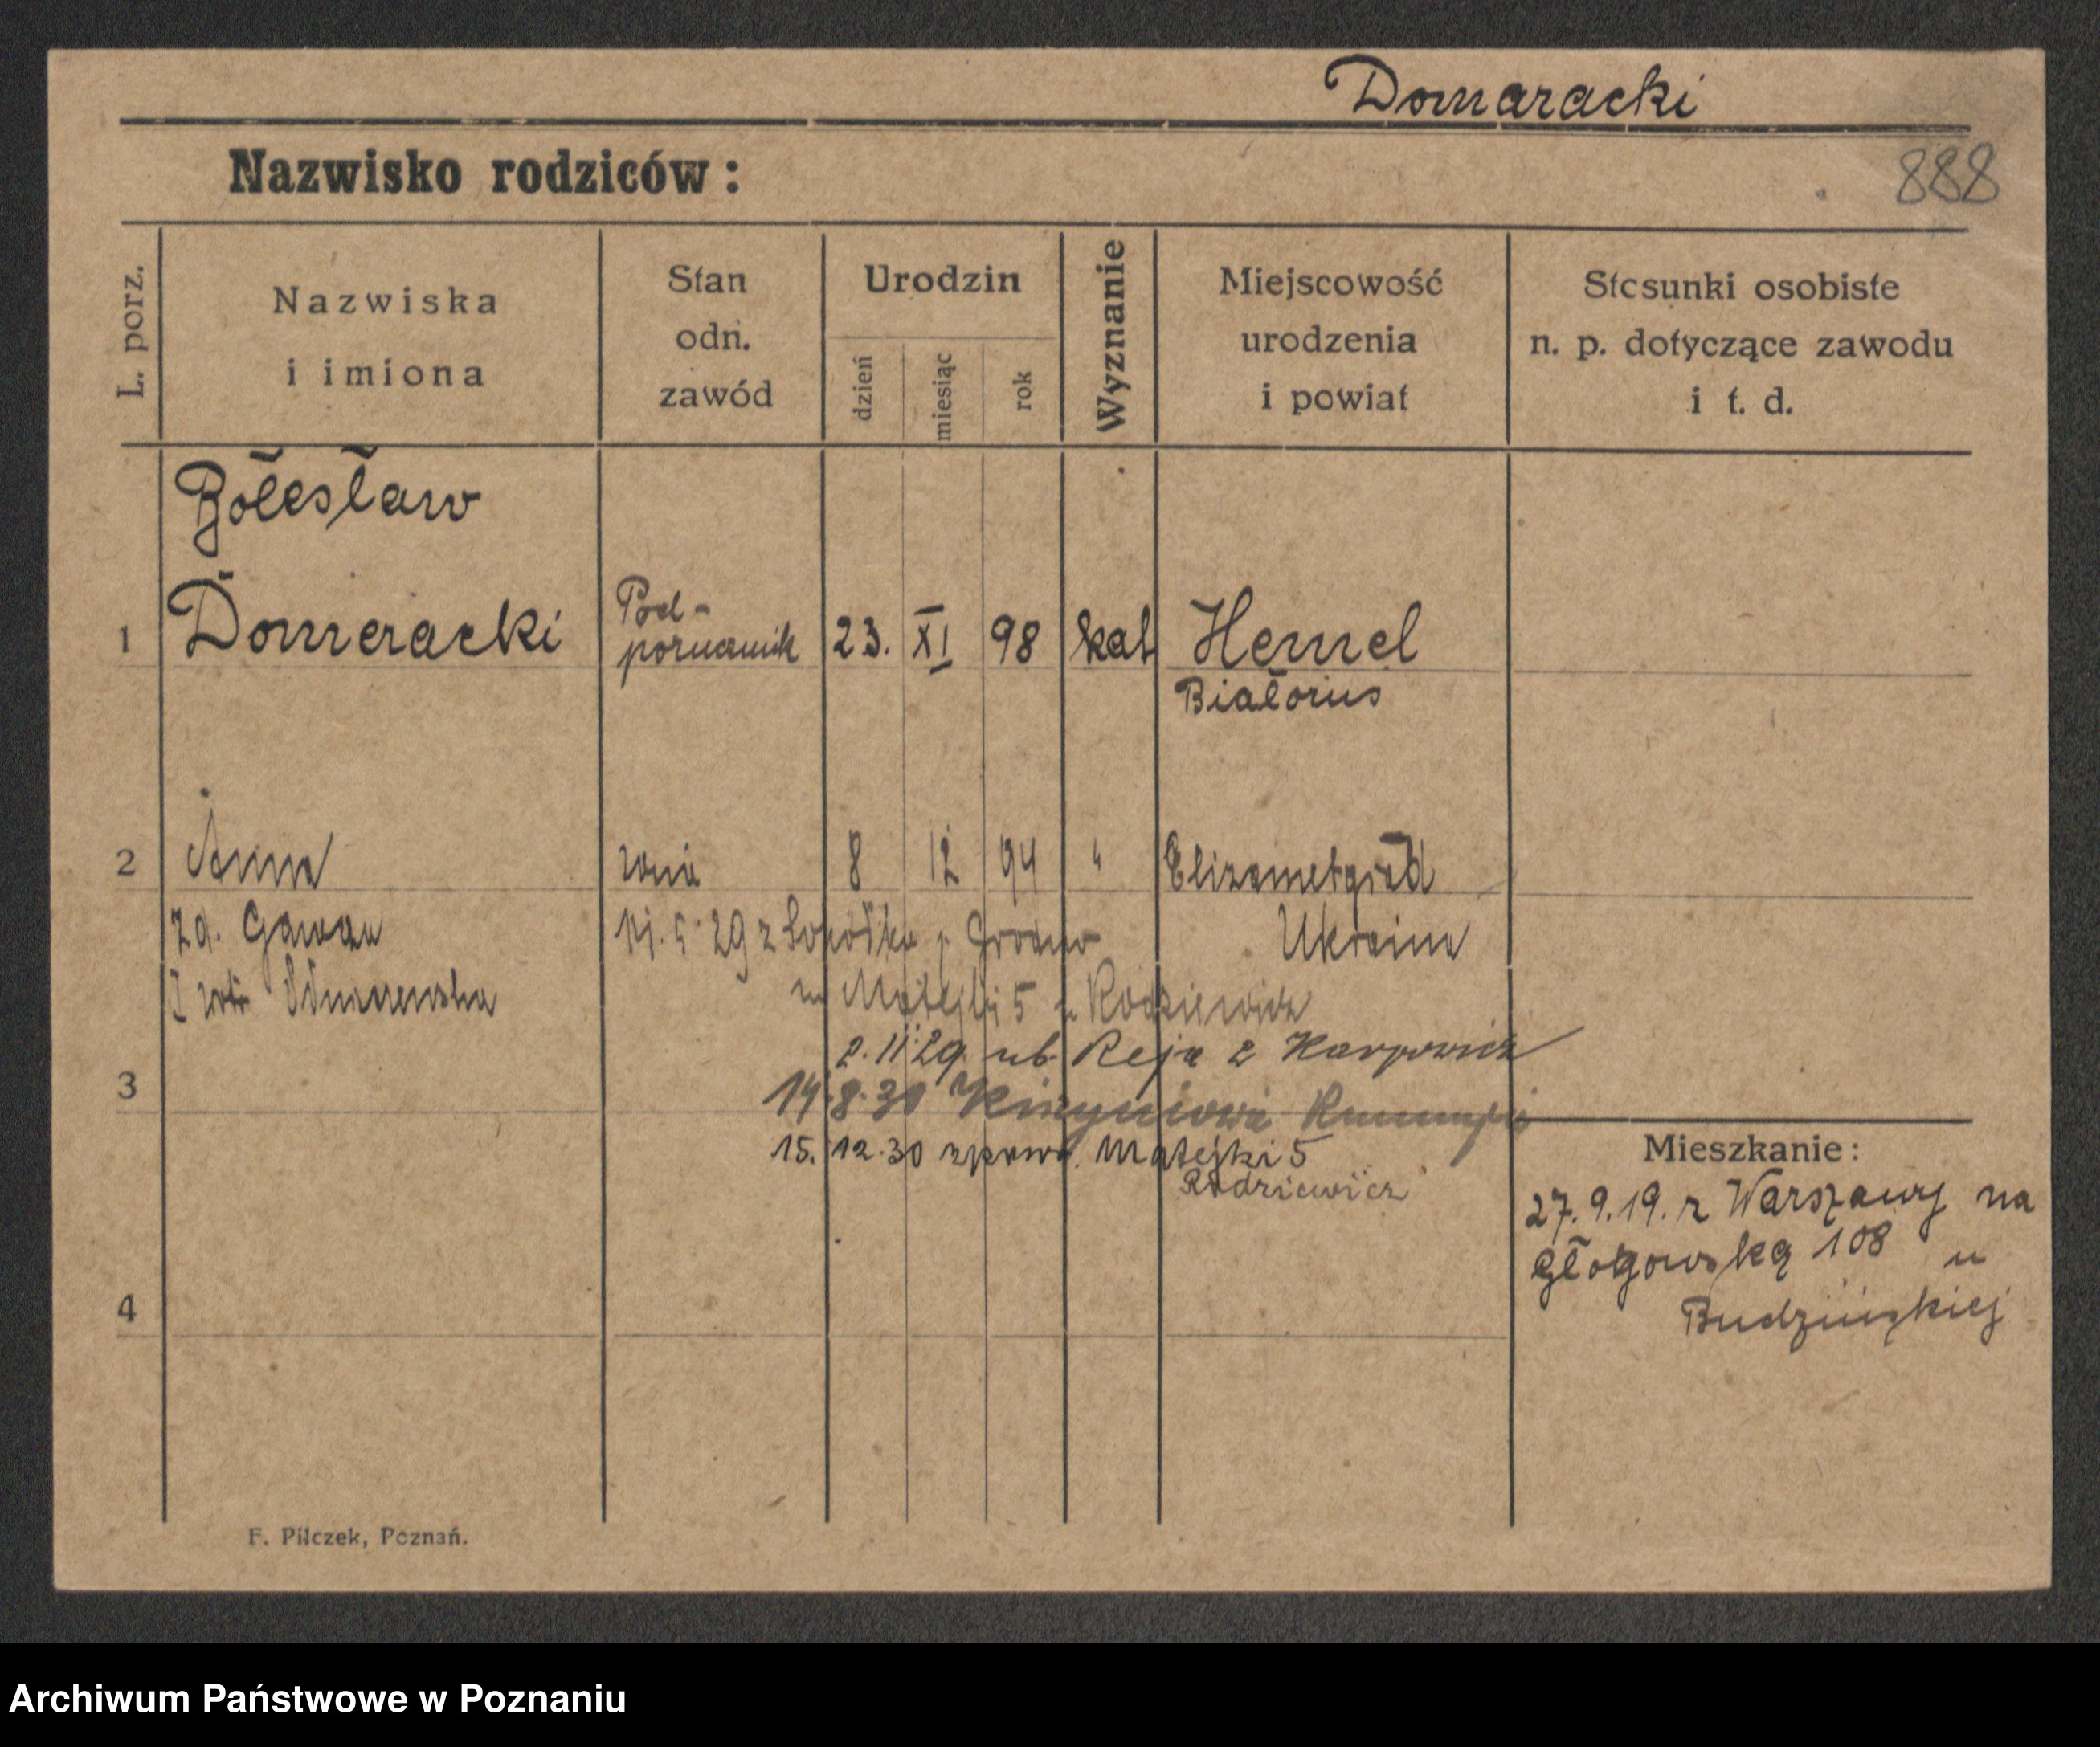 Domaracki
Nazwisko rodziców :
888
L. porz.
Nazwiska
i imiona
Stan
odn.
zawód
Urodzin
dzień
miesiąc
rok
Wyznanie
Miejscowość
urodzenia
i powiat
Stosunki osobiste
n. p. dotyczące zawodu
i t. d.
Bolesław
1 Domeracki Pod-porucznik 23. XI 98 kat Hemel
Białorus
2 Anna żona 8 12 94 " Elizametgrad
Ukraina
29 z p. Grodno
Matejki 5 u Rodziewicz
2.11.29. ub. Reja 2 Karpowicz
3
14.8.30
15.12.30 Matejki 5
Rodziewicz
Mieszkanie :
27.9.19. z Warszawy na
Głogowską 108 u
Budzińskiej
4
F. Pilczek, Poznań.
Archiwum Państwowe w Poznaniu